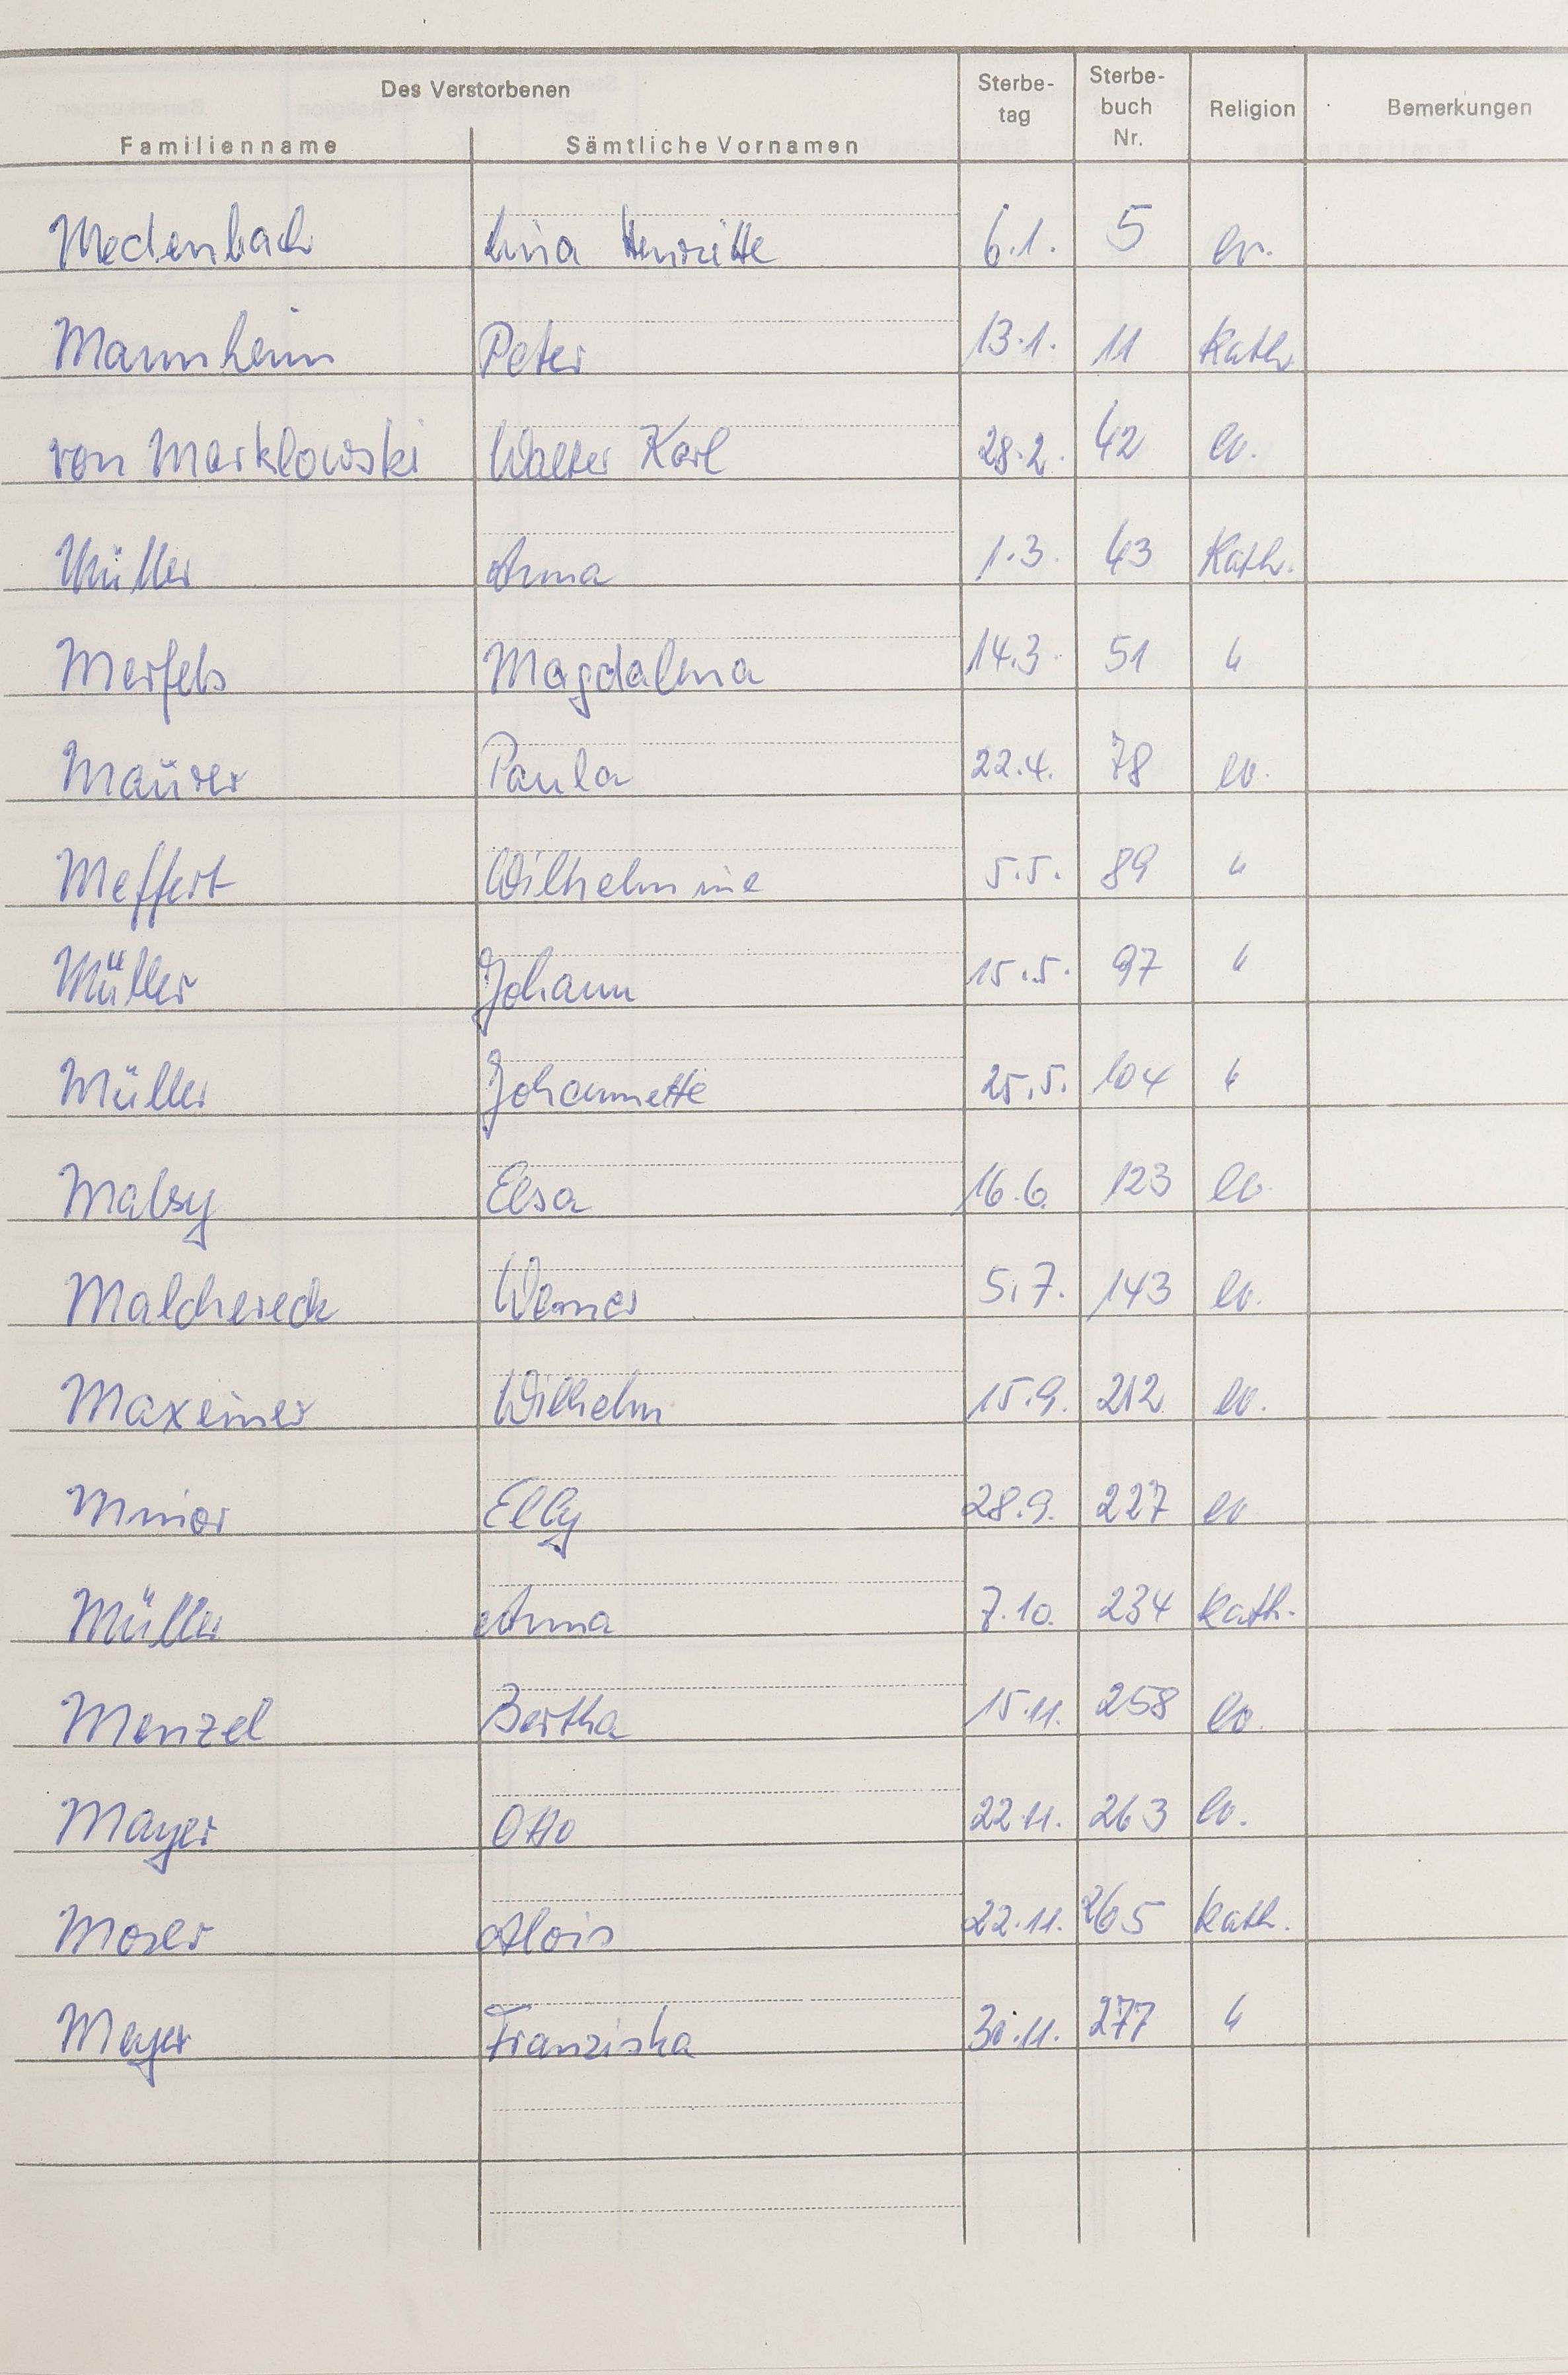 Des Verstorbenen
Familienname Sämtliche Vornamen Sterbe-tag Sterbe-buch Nr. Religion Bemerkungen
Medenbach Lina Henriette 6.1. 5 ev.
Mannheim Peter 13.1. 11 Kath.
von Marklowski Walter Karl 28.2. 42 ev.
Müller Anna 1.3. 43 Kath.
Merfels Magdalena 14.3. 51 "
Maurer Paula 22.4. 78 ev.
Meffert Wilhelmine 5.5. 89 "
Müller Johann 15.5. 97 "
Müller Johannette 25.5. 104 "
Malsy Elsa 16.6. 123 ev.
Malchereck Werner 5.7. 143 ev.
Maxeiner Wilhelm 15.9. 212 ev.
Minor Elly 28.9. 227 ev.
Müller Anna 7.10. 234 Kath.
Menzel Bertha 15.11. 258 ev.
Mayer Otto 22.11. 263 ev.
Moser Alois 22.11. 265 Kath.
Meyer Franziska 30.11. 277 "